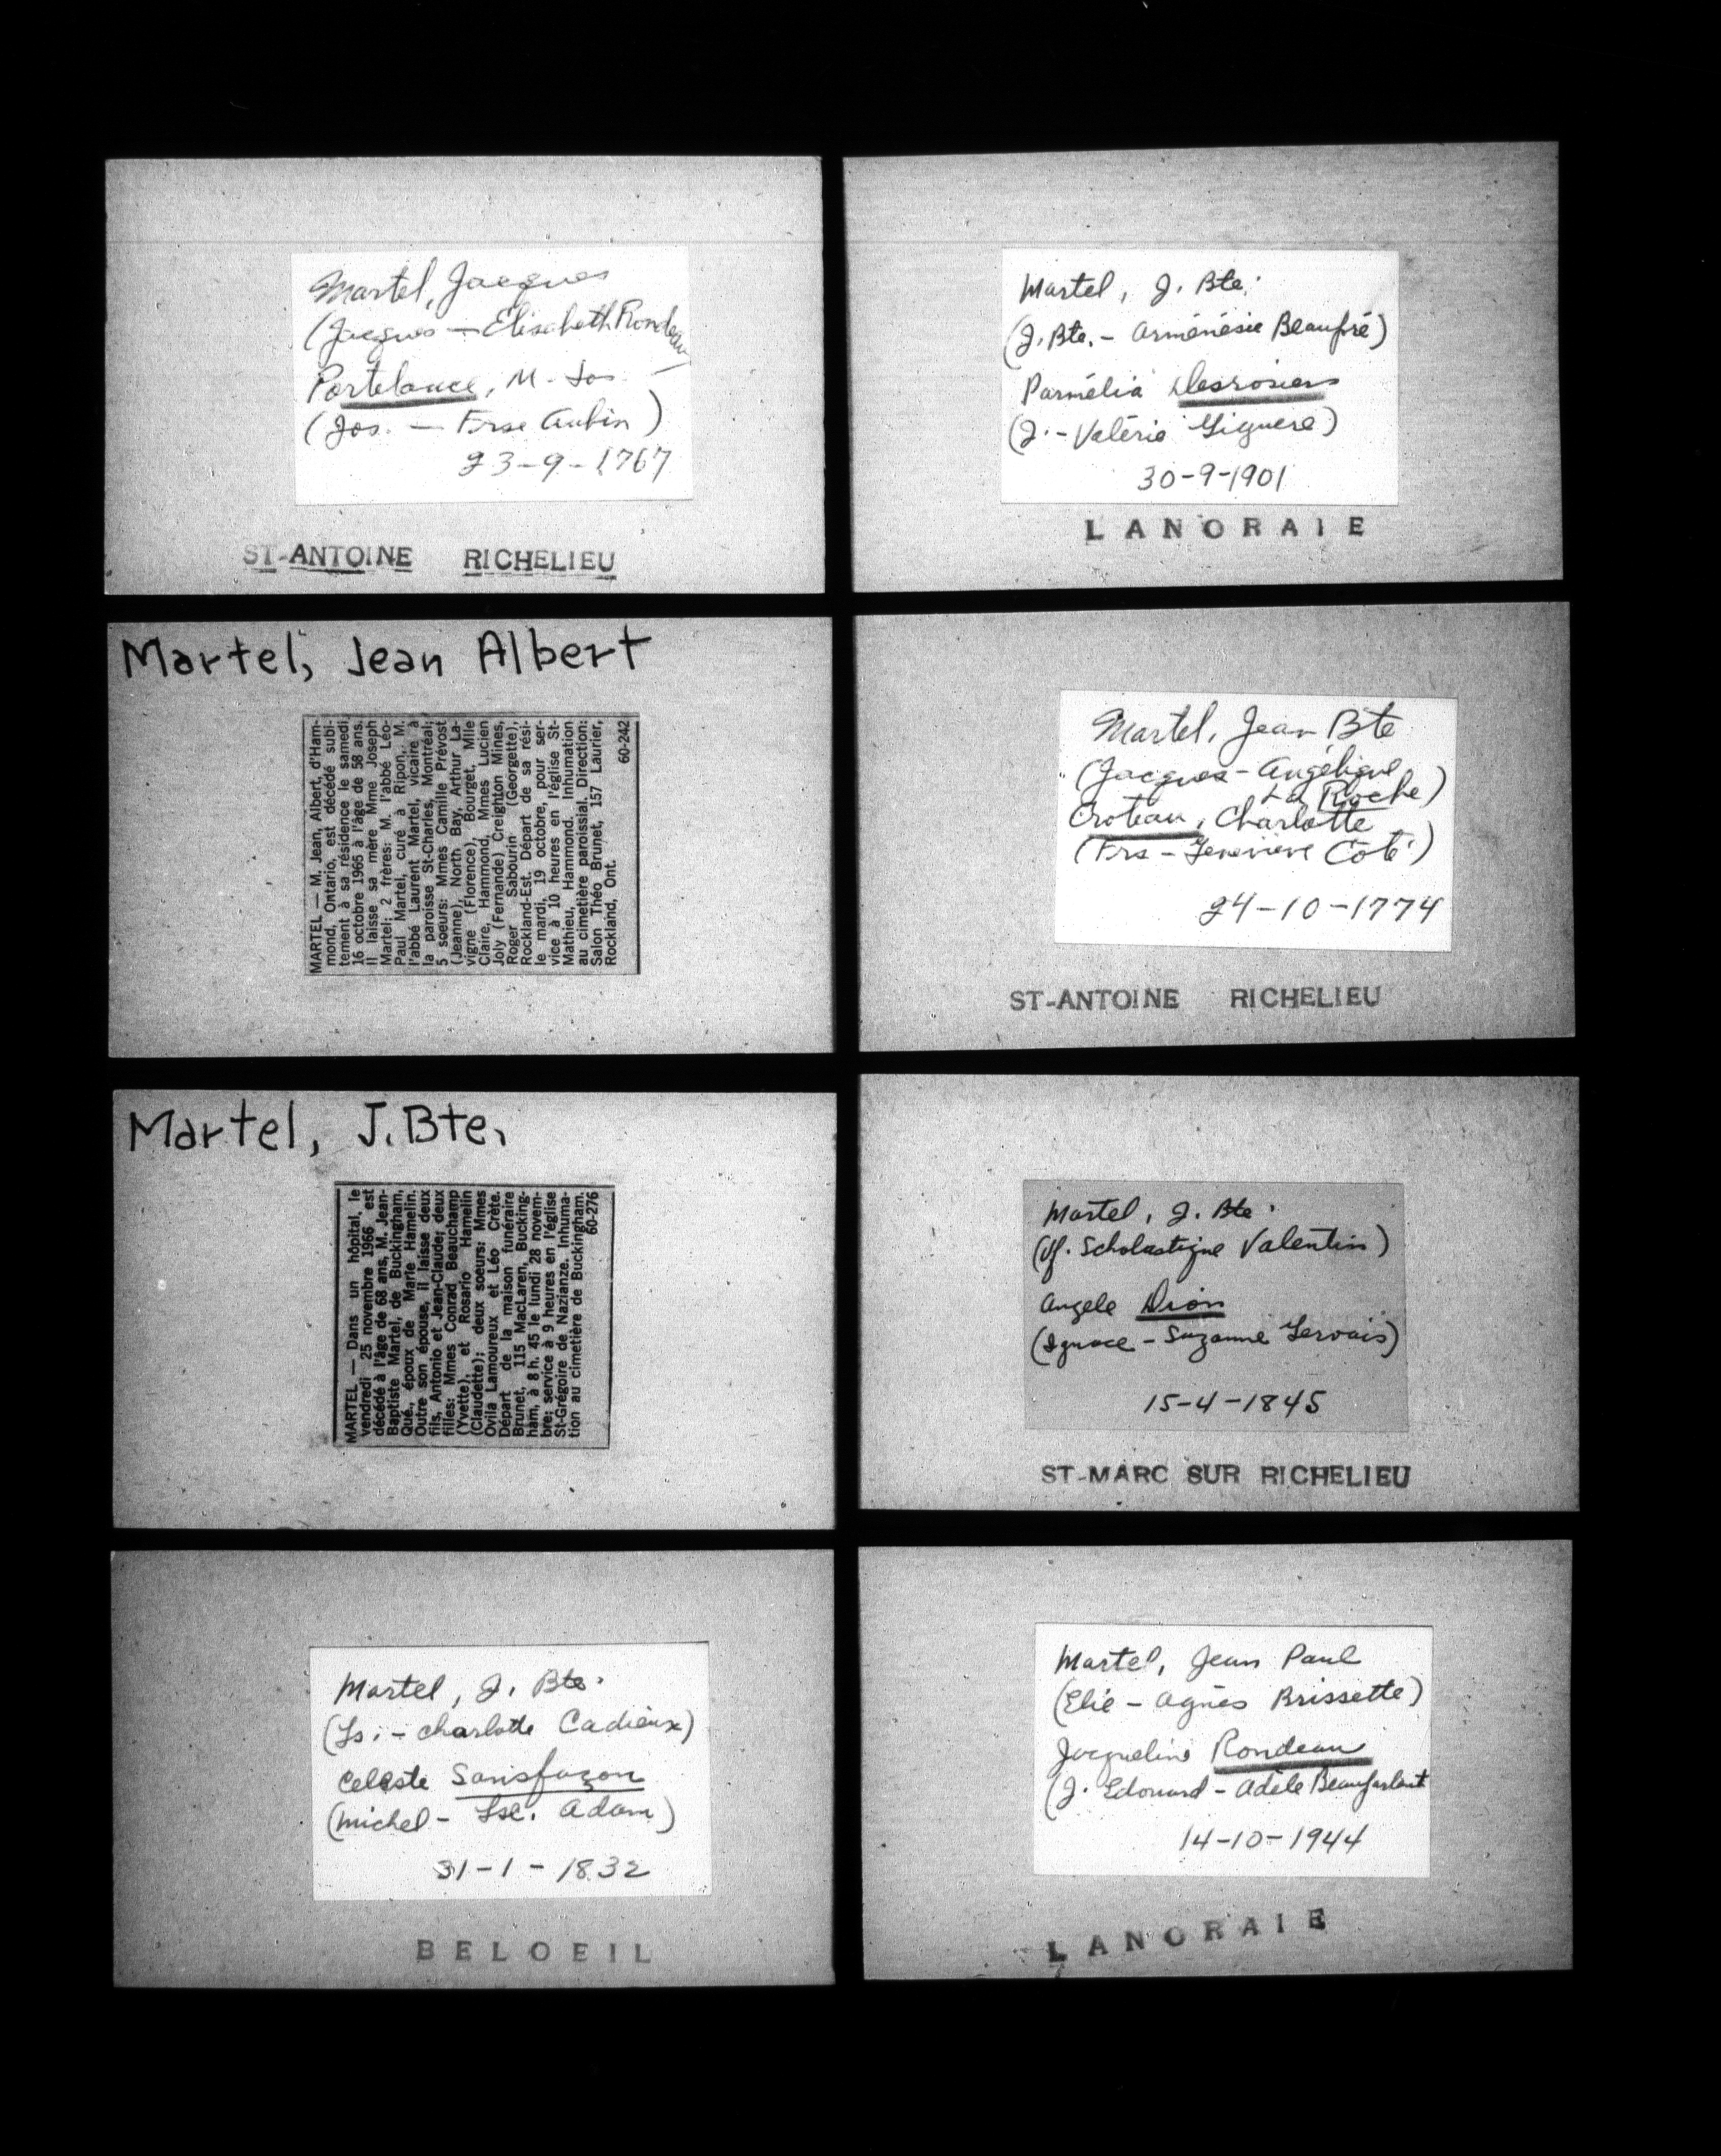 Martel, Jacques
(Jacques — Elisabeth Rondeau)
Portelance, M. Jos.
(Jos. — Frse Aubin)
23-9-1767
ST-ANTOINE RICHELIEU
Martel, J. Bte.
(J. Bte. - Arménésie Beaupré)
Parmélia Desrosiers
(J. - Valérie Giguere)
30-9-1901
LANORAIE
Martel, Jean Albert
MARTEL — M. Jean, Albert, d'Ham-
mond, Ontario, est décédé subi-
tement à sa résidence le samedi,
16 octobre 1965 à l'âge de 58 ans.
Il laisse sa mère Mme Joseph
Martel; 2 frères: M. l'abbé Léo-
Paul Martel, curé à Ripon, M.
l'abbé Laurent Martel, vicaire à
la paroisse St-Charles, Montréal;
5 soeurs: Mmes Camille Prévost
(Jeanne), North Bay, Arthur La-
vigne (Florence), Bourget, Mlle
Claire, Hammond, Mmes Lucien
Joly (Fernande) Creighton Mines,
Roger Sabourin (Georgette),
Rockland-Est. Départ de sa rési-
le mardi, 19 octobre, pour ser-
vice à 10 heures en l'église St-
Mathieu, Hammond. Inhumation
au cimetière paroissial. Direction:
Salon Théo Brunet, 157 Laurier,
Rockland, Ont.
60-242
Martel, Jean Bte
(Jacques - Angélique
La Roche)
Croteau, Charlotte
(Frs - Genevieve Côté)
24-10-1774
ST-ANTOINE RICHELIEU
Martel, J.Bte.
MARTEL — Dans un hôpital, le
vendredi 25 novembre 1966 est
décédé à l'âge de 68 ans, M. Jean-
Baptiste Martel, de Buckingham,
Qué., époux de Marie Hamelin.
Outre son épouse, il laisse deux
fils, Antonio et Jean-Claude; deux
filles: Mmes Conrad Beauchamp
(Yvette), et Rosario Hamelin
(Claudette); deux soeurs: Mmes
Ovila Lamoureux et Léo Crète.
Départ de la maison funéraire
Brunet, 115 MacLaren, Bucking-
ham, à 8 h. 45 le lundi 28 novem-
bre; service à 9 heures en l'église
St-Grégoire de Nazianze. Inhuma-
tion au cimetière de Buckingham.
60-276
Martel, J. Bte.
(Vf. Scholastique Valentin)
Angele Dion
(Ignace - Suzanne Gervais)
15-4-1845
ST-MARC SUR RICHELIEU
Martel, J. Bte.
(Ls. - Charlotte Cadieux)
Celeste Sansfaçon
(Michel - Lse. Adam)
31-1-1832
BELOEIL
Martel, Jean Paul
(Elie - Agnès Brissette)
Jacqueline Rondeau
(J. Edouard - Adèle Beauparlant
14-10-1944
LANORAIE